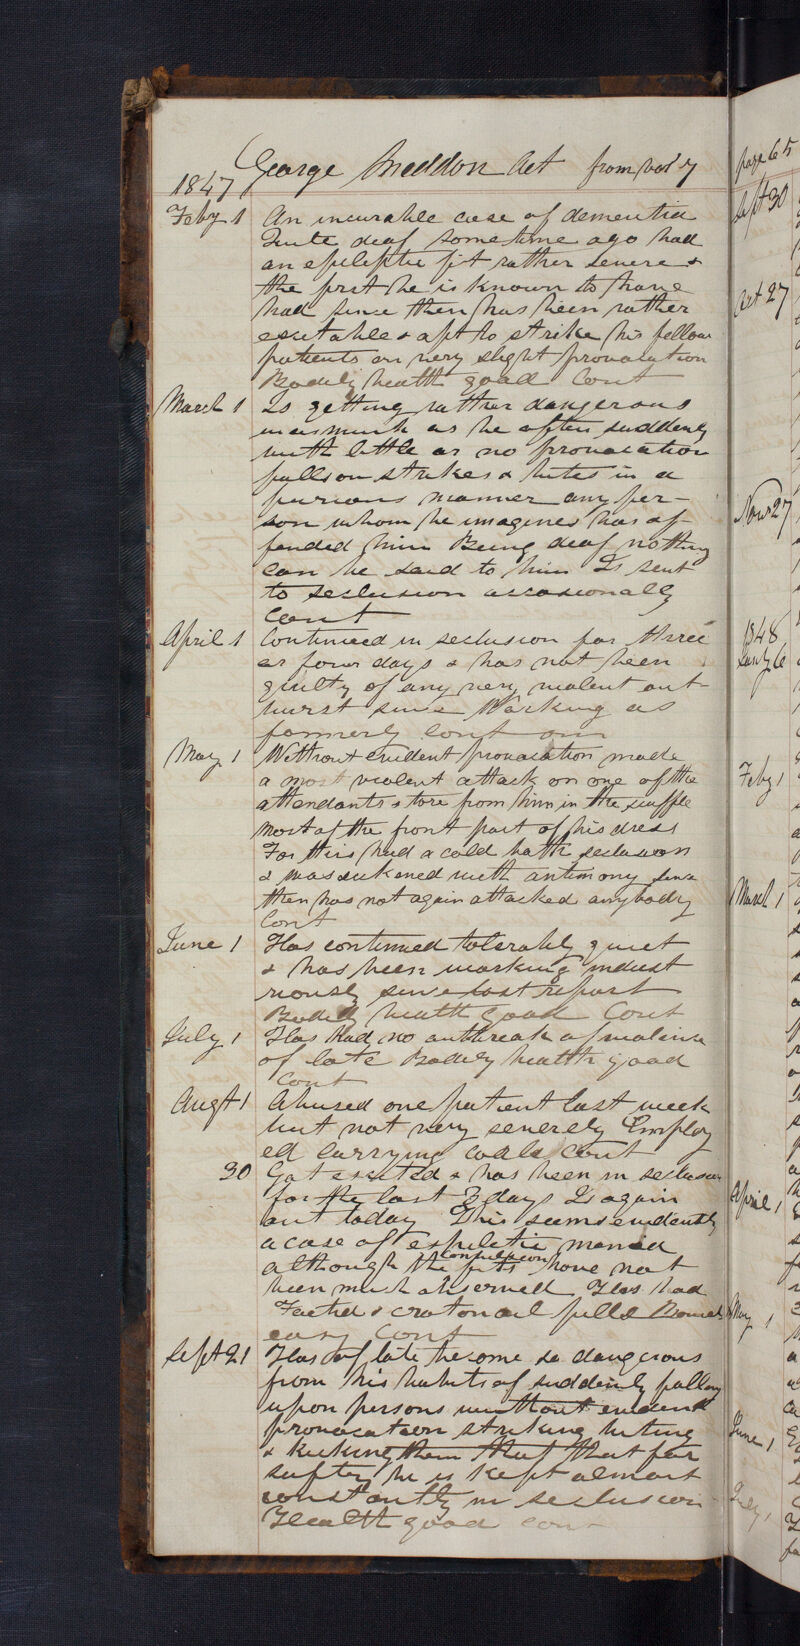 George Sneddon Aet from Vol 7
1847
Feby 1 An incurable case of dementia
Quite deaf sometime ago had
an epileptic fit rather severe &
the first he is known to have
had since then has been rather
excitable & apt to strike his fellow
patients on very slight provocation
Bodily health good Cont
March 1 Is getting rather dangerous
inasmuch as he often suddenly
with little or no provocation
falls on strikes & bites in a
furious manner any per-
son whom he imagines has of-
fended him Being deaf nothing
can be said to him Is sent
to seclusion occasionally
Cont
April 1 Continued in seclusion for three
or four days & has not been
guilty of any very violent out
burst since Working as
formerly Cont
May 1 Without evident provocation made
a most violent attack on one of the
attendants & tore from him in the scuffle
most of the front part of his dress
For this had a cold bath seclusion
& was sickened with antimony since
then has not again attacked anybody
Cont
June 1 Has continued tolerably quiet
& has been working indust
riously since last report
Bodily health good Cont
July 1 Has had no outbreak of violence
of late Bodily health good
Cont
Augt 1 Abused one patient last week
but not very severely Employ
ed carrying coals Cont
30 Got excited & has been in seclusion
for the last 3 days Is again
out today This seems evidently
a case of epileptic mania
although the convulsion fits have not
been much observed Has had
Foetid & croton oil pills Bowels
easy Cont
Sept 21 Has of late become so dangerous
from his habits of suddenly falling
upon persons without evident
provocation striking biting
& kicking them that that for
safety he is kept almost
constantly in seclusion
Health good Cont
page 65
Sept 30
Oct 27
Novr 27
1848
Jany 6
Feby 1
March 1
April 1
May 1
June 1
July 1